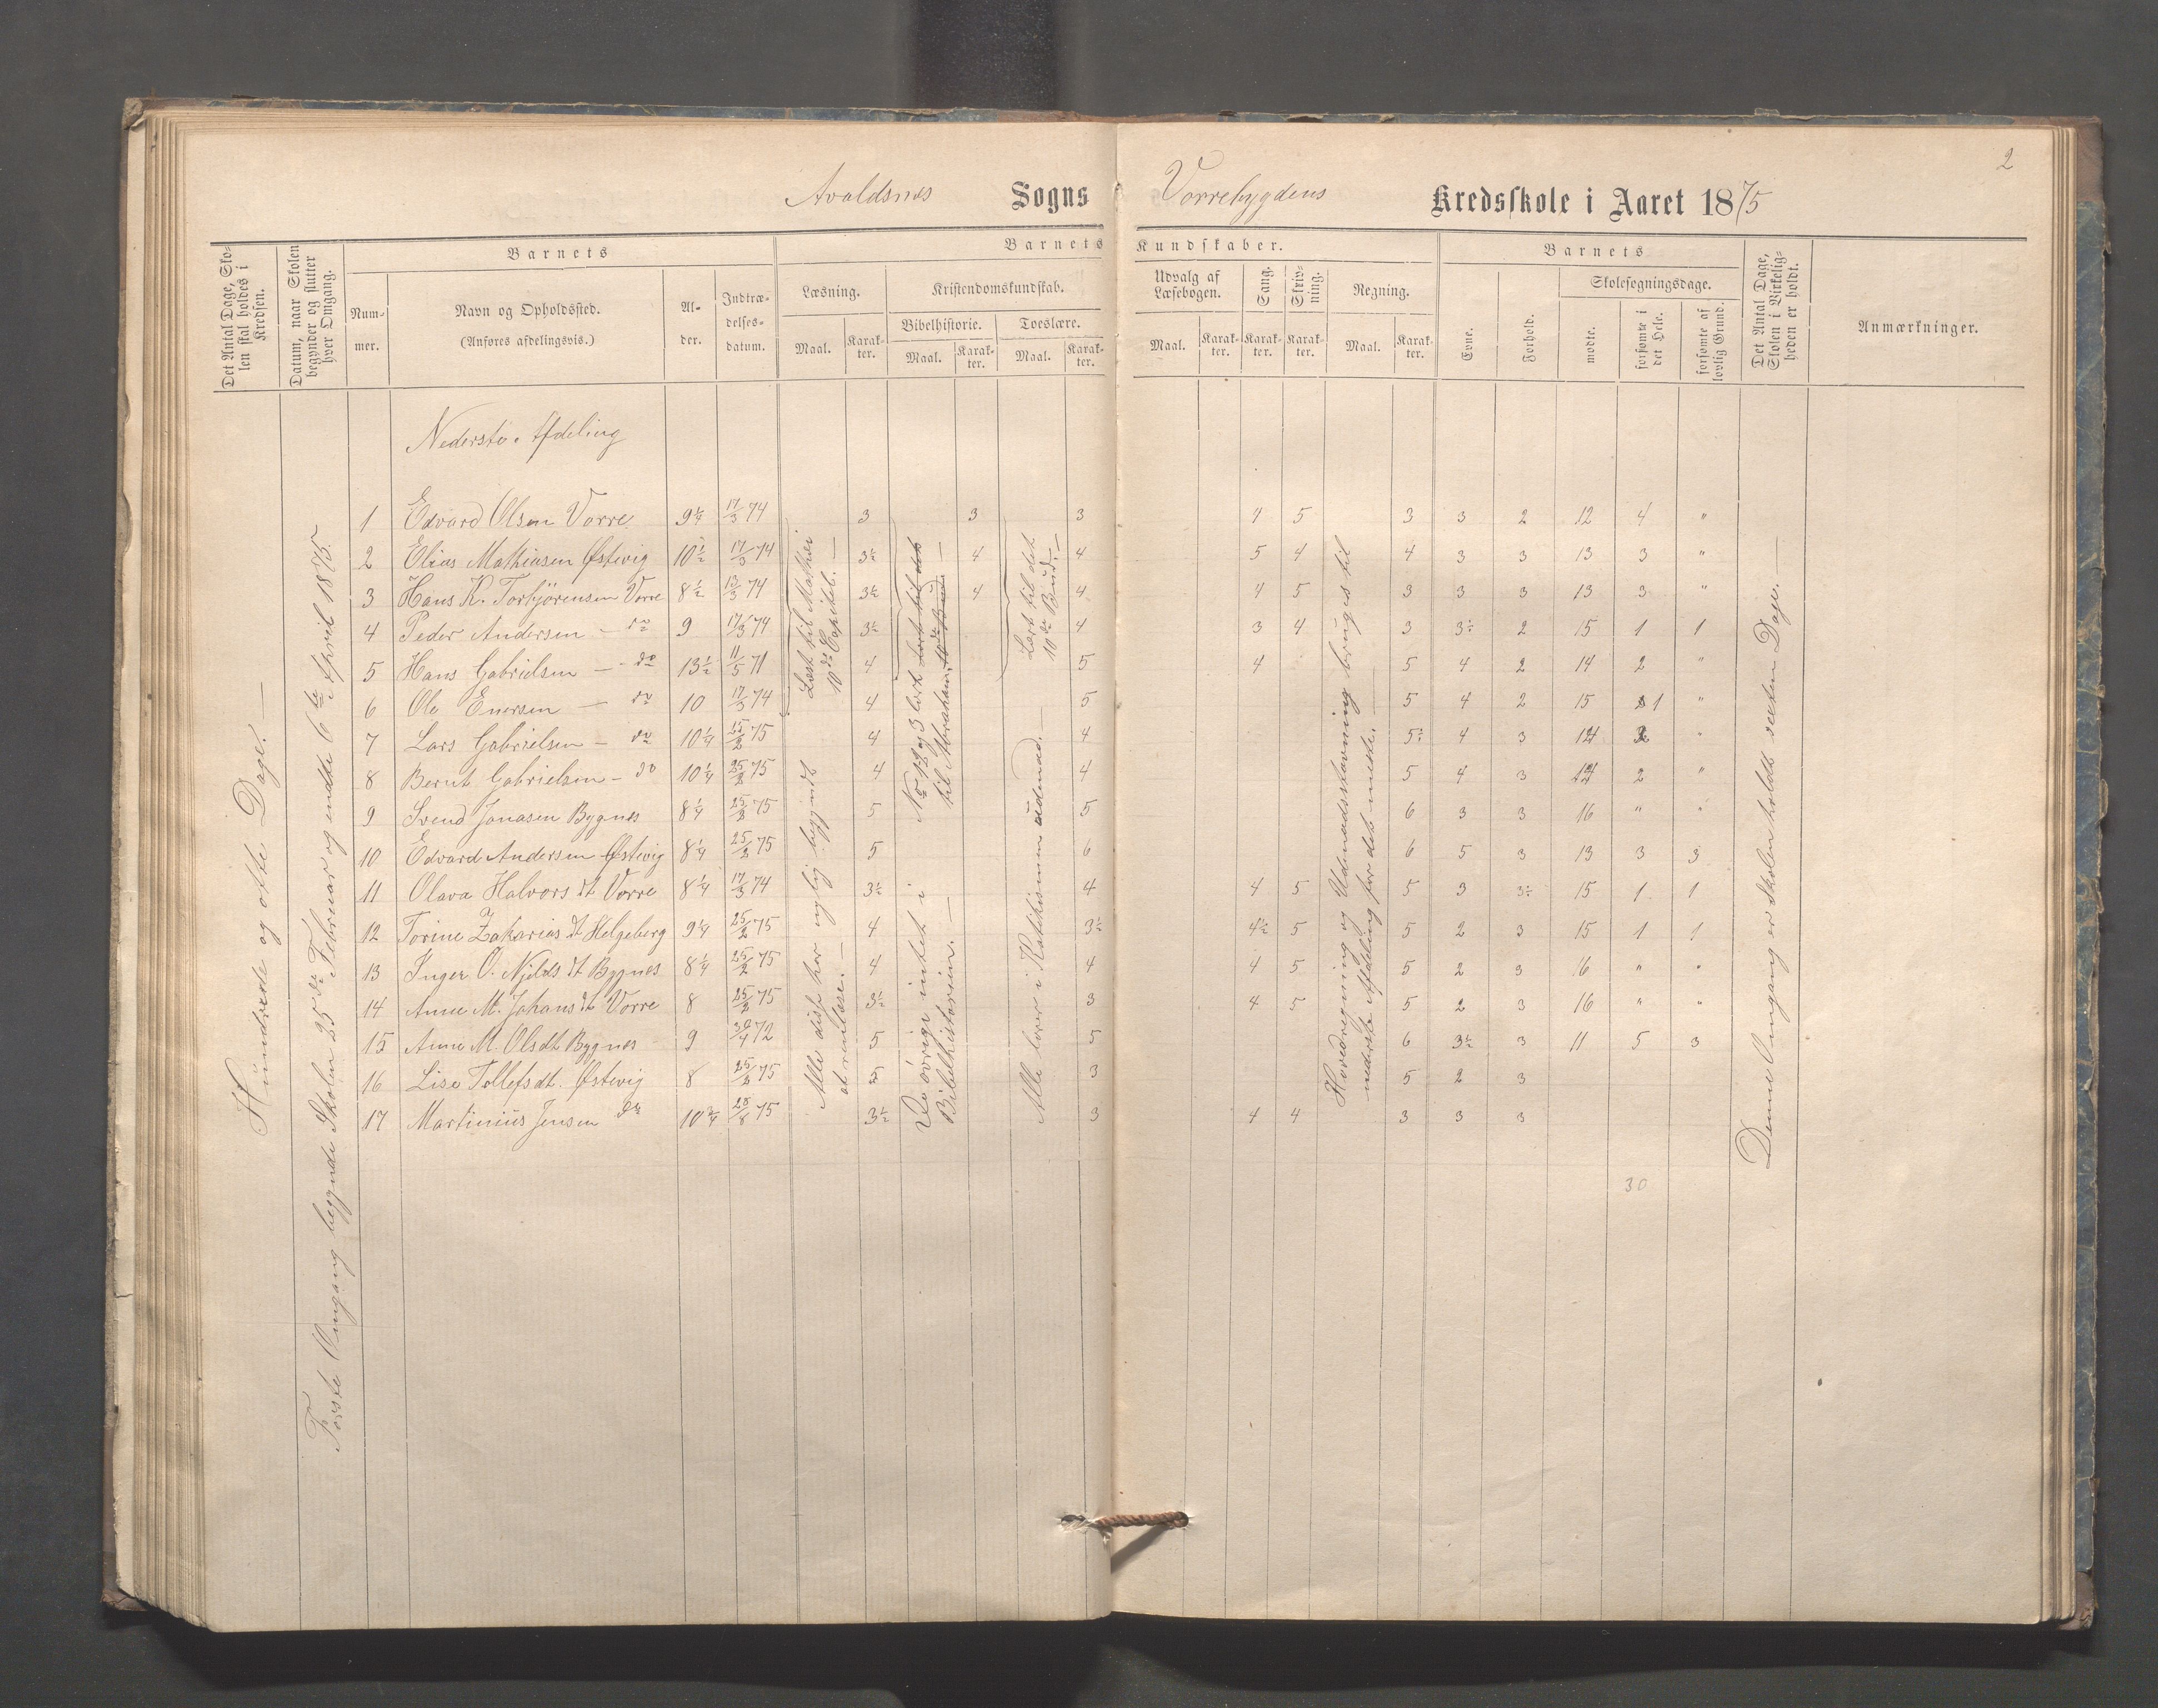 2
Avaldsnes Sogns Vorrebygdens Kredsskole i Aaret 1875
Det Antal Dage, Skolen skal holdes i Kredsen.
Datum, naar Skolen begynder og slutter hver Omgang.
Barnets
Nummer.
Navn og Opholdssted.
(Anføres afdelingsvis.)
Alder.
Indtrædelsesdatum.
Barnets Kundskaber.
Læsning.
Maal. Karakter.
Kristendomskundskab.
Bibelhistorie.
Maal. Karakter.
Troeslære.
Maal. Karakter.
Udvalg af Læsebogen.
Maal. Karakter.
Sang.
Karakter.
Skrivning.
Karakter.
Regning.
Maal. Karakter.
Barnets
Evne.
Forhold.
Skolesøgningsdage.
mødte.
forsømte i det Hele.
forsømte af lovlig Grund.
Det Antal Dage, Skolen i Virkeligheden er holdt.
Anmærkninger.
Hundrede og otte Dage. —
Første Omgang begyndte Skolen 25de Februar og endte 6te April 1875.
Nederste Afdeling
1 Edvard Olsen Vorre 9 1/4 17/3 74 3 3 3 4 5 3 3 2 12 4 "
2 Elias Mathiasen Østevig 10 1/2 17/3 74 3½ 4 4 5 4 4 3 3 13 3 "
3 Hans K. Torbjørensen Vorre 8 1/2 13/3 74 3½ 4 4 4 5 3 3 3 13 3 "
4 Peder Andersen — do 9 17/3 74 3½ 4 3 4 3 3½ 2 15 1 1
5 Hans Gabrielsen — do 13 1/2 11/5 71 4 5 4 5 4 2 14 2 "
6 Ole Enersen — do 10 17/3 74 4 5 5 4 2 15 1 "
7 Lars Gabrielsen — do 10 1/4 25/2 75 4 4 5½ 4 3 14 2 "
8 Bernt Gabrielsen — do 10 1/4 25/2 75 4 4 5 4 3 14 2 "
9 Svend Jonasen Bygnes 8 1/4 25/2 75 5 5 6 3 3 16 " "
10 Edvard Andersen Østevig 8 1/4 25/2 75 5 6 6 5 3 13 3 3
11 Olava Halvors dt Vorre 8 1/4 17/3 74 3½ 4 4 5 5 3 3½ 15 1 1
12 Torine Zakarias dt Helgeberg 9 1/4 25/2 75 4 3½ 4½ 5 5 2 3 15 1 1
13 Inger O. Njelds dt Bygnes 8 1/4 25/2 75 4 4 4 5 5 2 3 16 " "
14 Anne M. Johans dt Vorre 8 25/2 75 3½ 3 4 5 5 2 3 16 " "
15 Anne M. Olsdt Bygnes 9 30/4 72 5 5 6 3½ 3 11 5 3
16 Lise Tollefsdt. Østevig 8 25/2 75 5 3 5 2 3
17 Martinius Jensen do 10 3/4 28/8 75 3½ 3 4 4 3 3 3
30
Læst til Mathæi 10de Capitel. —
Alle disse har nylig begyndt at reenlæse. —
No 1, 2 og 3 lært lært til det til Abraham, 10de Bud. —
De øvrige intet i Bibelhistorien. —
Lært til det 10de Bud. —
Alle lærer i Katekismen udenad. —
Hovedregning og Udenadsstavning bruges til nederste Afdeling for det meste. —
Denne Omgang er Skolen holdt sexten Dage. —